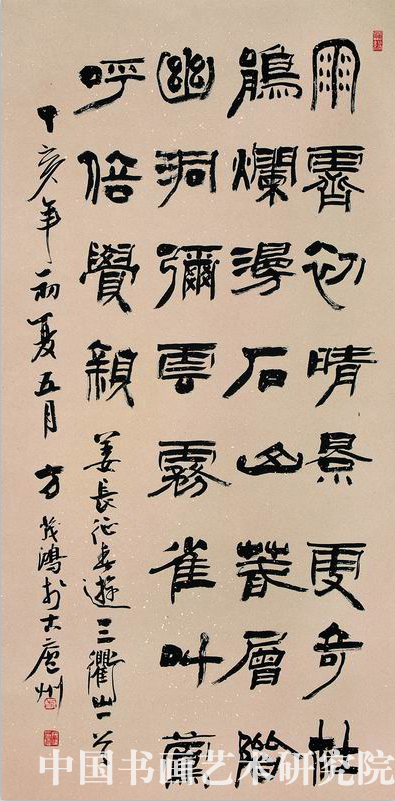 雨霽初晴景更奇杜
鵑爛漫石山春層階
幽洞彌雲霧雀叫
呼倍覺親
姜長征春遊三衢山一首
丁亥年初夏五月方茂鴻於古廬州
中国书画艺术研究院